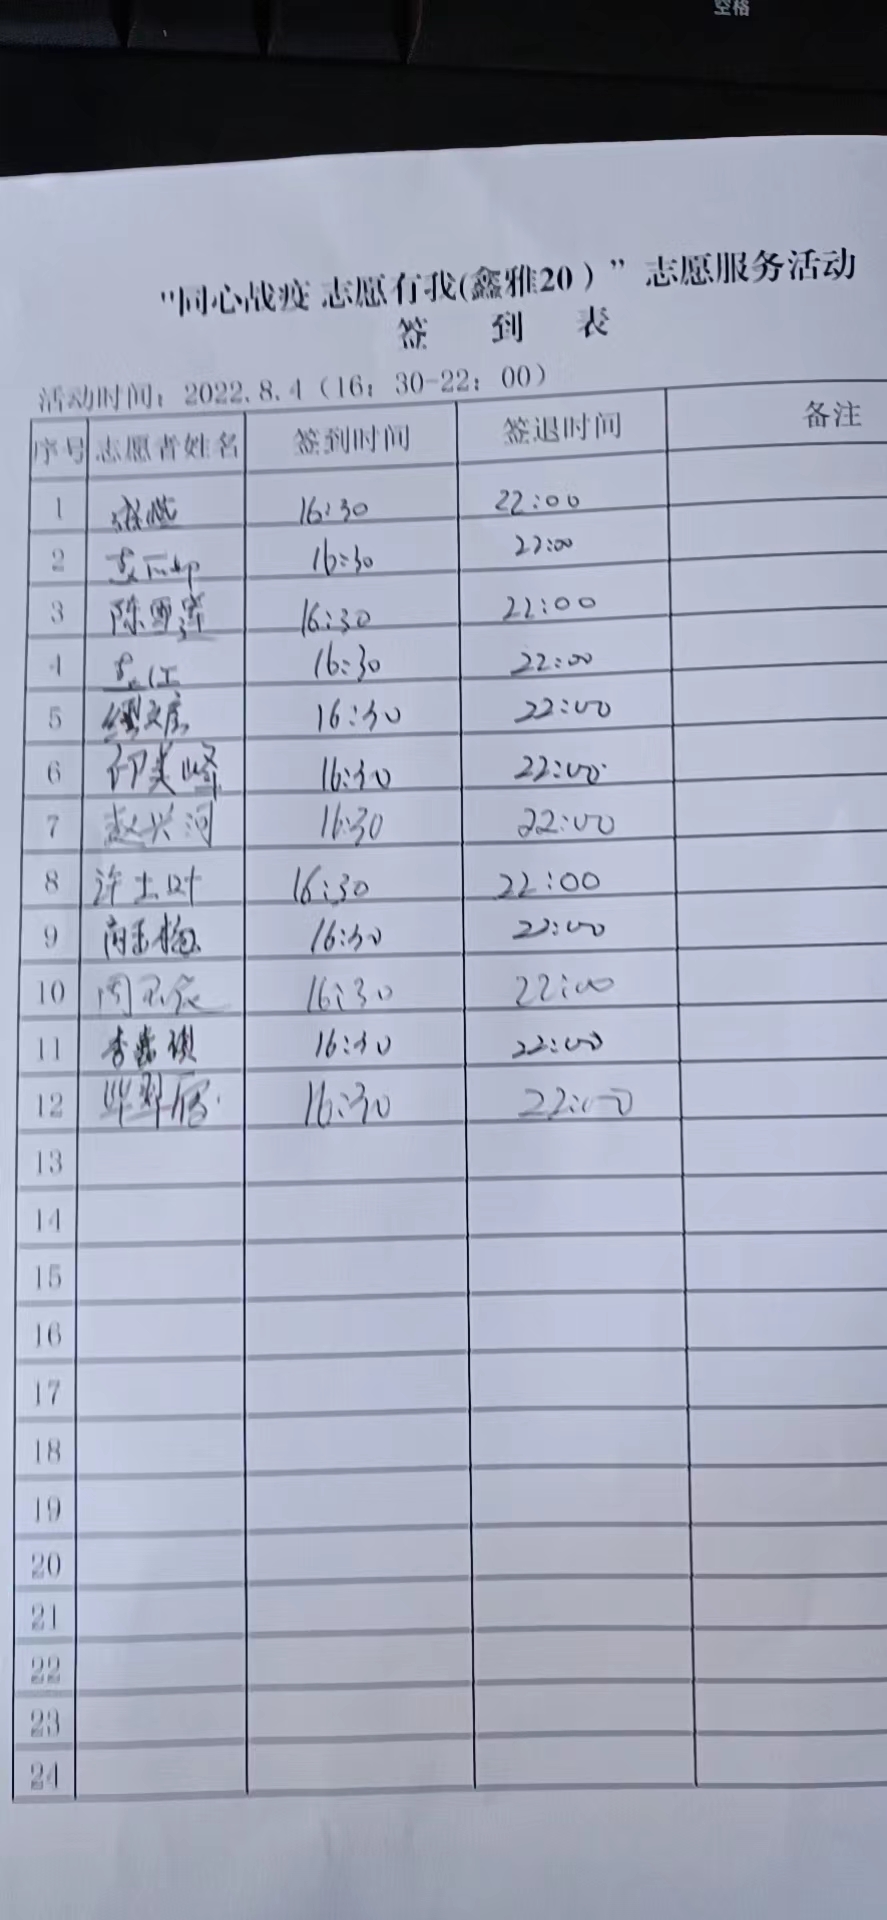 空格
"同心战疫 志愿有我(鑫雅20）” 志愿服务活动
签 到 表
活动时间：2022.8.4（16：30-22：00）
序号 志愿者姓名 签到时间 签退时间 备注
1 16:30 22:00
2 16:30 22:00
3 陈雪莲 16:30 22:00
4 16:30 22:00
5 16:30 22:00
6 邵美峰 16:30 22:00
7 赵兴河 16:30 22:00
8 许土叶 16:30 22:00
9 16:30 22:00
10 16:30 22:00
11 李嘉琪 16:30 22:00
12 16:30 22:00
13
14
15
16
17
18
19
20
21
22
23
24